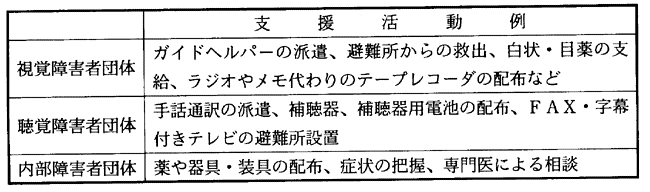 支援活動例
視覚障害者団体
ガイドヘルパーの派遣、避難所からの救出、白状・目薬の支
給、ラジオやメモ代わりのテープレコーダの配布など
聴覚障害者団体
手話通訳の派遣、補聴器、補聴器用電池の配布、ＦＡＸ・字幕
付きテレビの避難所設置
内部障害者団体
薬や器具・装具の配布、症状の把握、専門医による相談